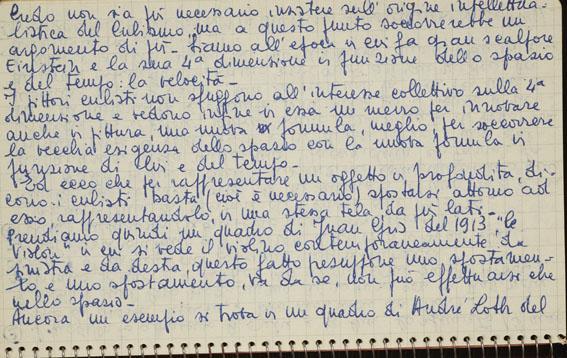 Credo non sia più necessario insistere sull'origine intellettua-
listica del cubismo, ma a questo punto soccorrerebbe un
argomento di più - siamo all'epoca in cui fa gran scalpore
Einstein e la sua 4ª dimensione in funzione dello spazio
e del tempo: la velocità -
I pittori cubisti non sfuggono all'interesse collettivo sulla 4ª
dimensione e vedono infine in essa un mezzo per innovare
anche in pittura, una nuova formula, meglio, per soccorrere
la vecchia esigenza dello spazio con la nuova formula in
funzione di lui e del tempo -
Ed ecco che per rappresentare un oggetto in profondità, di-
cono i cubisti basta (cioè è necessario) spostarsi attorno ad
esso, rappresentandolo, in una stessa tela, da più lati -
Prendiamo quindi un quadro di Juan Gris del 1913 "le
Violon" in cui si vede il violino contemporaneamente da
sinistra e da destra, questo fatto presuppone uno spostamen-
to, e uno spostamento, va da se, non può effettuarsi che
nello spazio -
Ancora un esempio si trova in un quadro di André Loth del